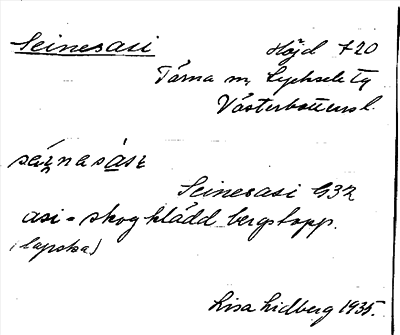 Seinesasi Höjd 720
Tärna sn, Lycksele lg
Västerbottensl.
Seinesasi G32
asi = skogklädd bergstopp.
(lapska)
Lisa Lidberg 1935.